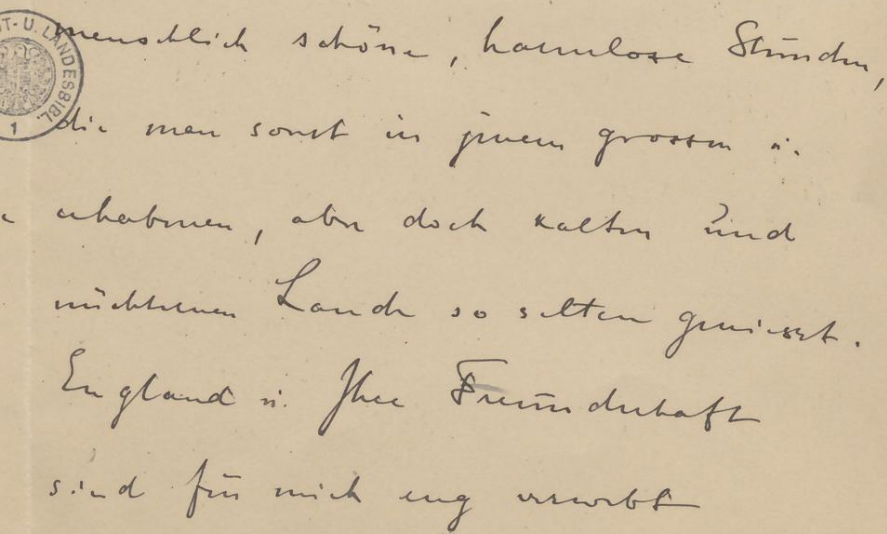 menschlich schöne, harmlose Stunden,
die man sonst in jenem grossen u.
erhabenen, aber doch kalten und
nüchternen Lande so selten geniesst.
England u. Ihre Freundschaft
sind für mich eng verwebt
T- U. LANDESBIBL.
1